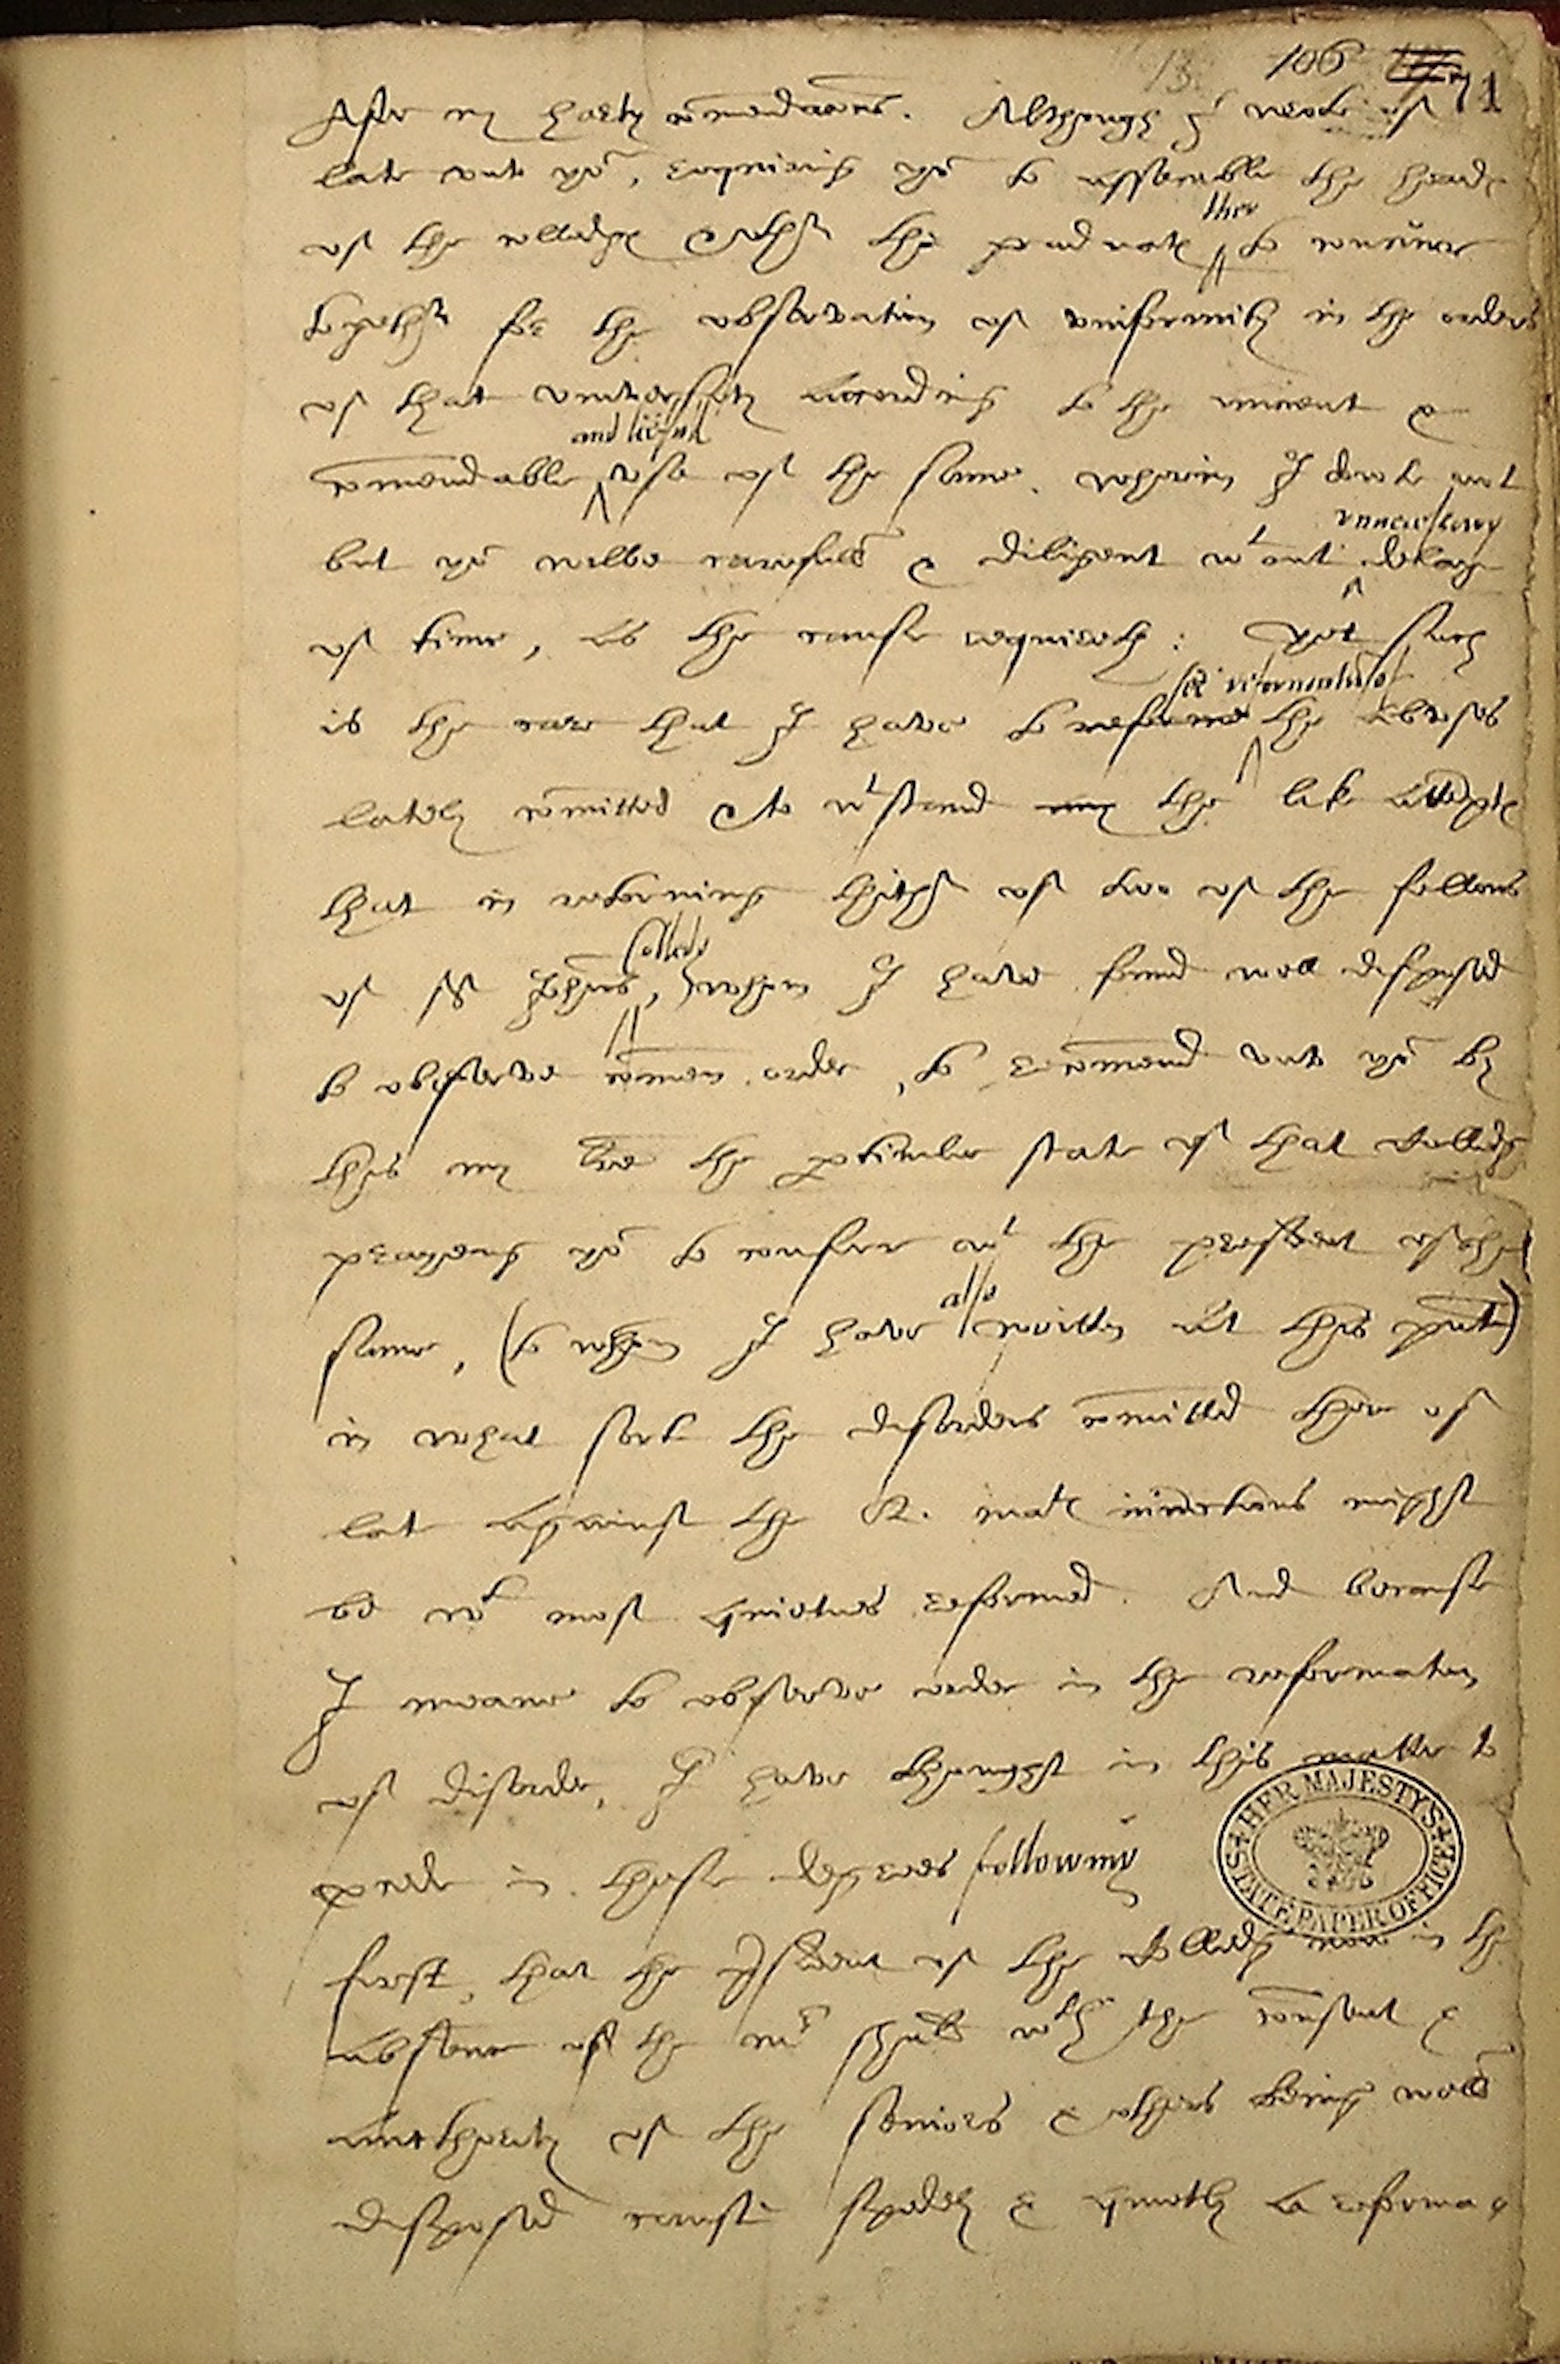 13 106 71
After my harty comendacons. Although I wrote of
late vnto yow, requiring yow to assemble the heads
of the colledges & other the graduates ther to conferre
together for the observation of vniformity in the orders
of that vniversity according to the auncient &
comendable and lawfull vse of the same. wherein I dowt not
but yow wilbe carefull & diligent wtout vnnecessary delay
of time, as the cause requireth: Yet such
is the care that I have to the abuses
lately comitted & to wtstand the like attempts
that in retorning thither of two of the fellows
of St Johns Colledg, whom I have found well disposed
to observe comen order, to recomend vnto yow by
this my lre the perticuler state of that Colledg
praying yow to conferre wt the president of the
same, (to whom I have also written at this pnt)
in what sort the disorders comitted ther of
late against the Q. mats iniunctions might
be wt most quietnes reformed. And because
I meane to observe order in the reformation
of disorder, I have thought in this matter to
procede in these degrees following
first, that the president of the Colledg now in the
absence of the mr shuld wth the consent &
authority of the seniors & others being well
disposed cause spedely & quietly to reforme
HER MAJESTY'S
STATE PAPER OFFICE